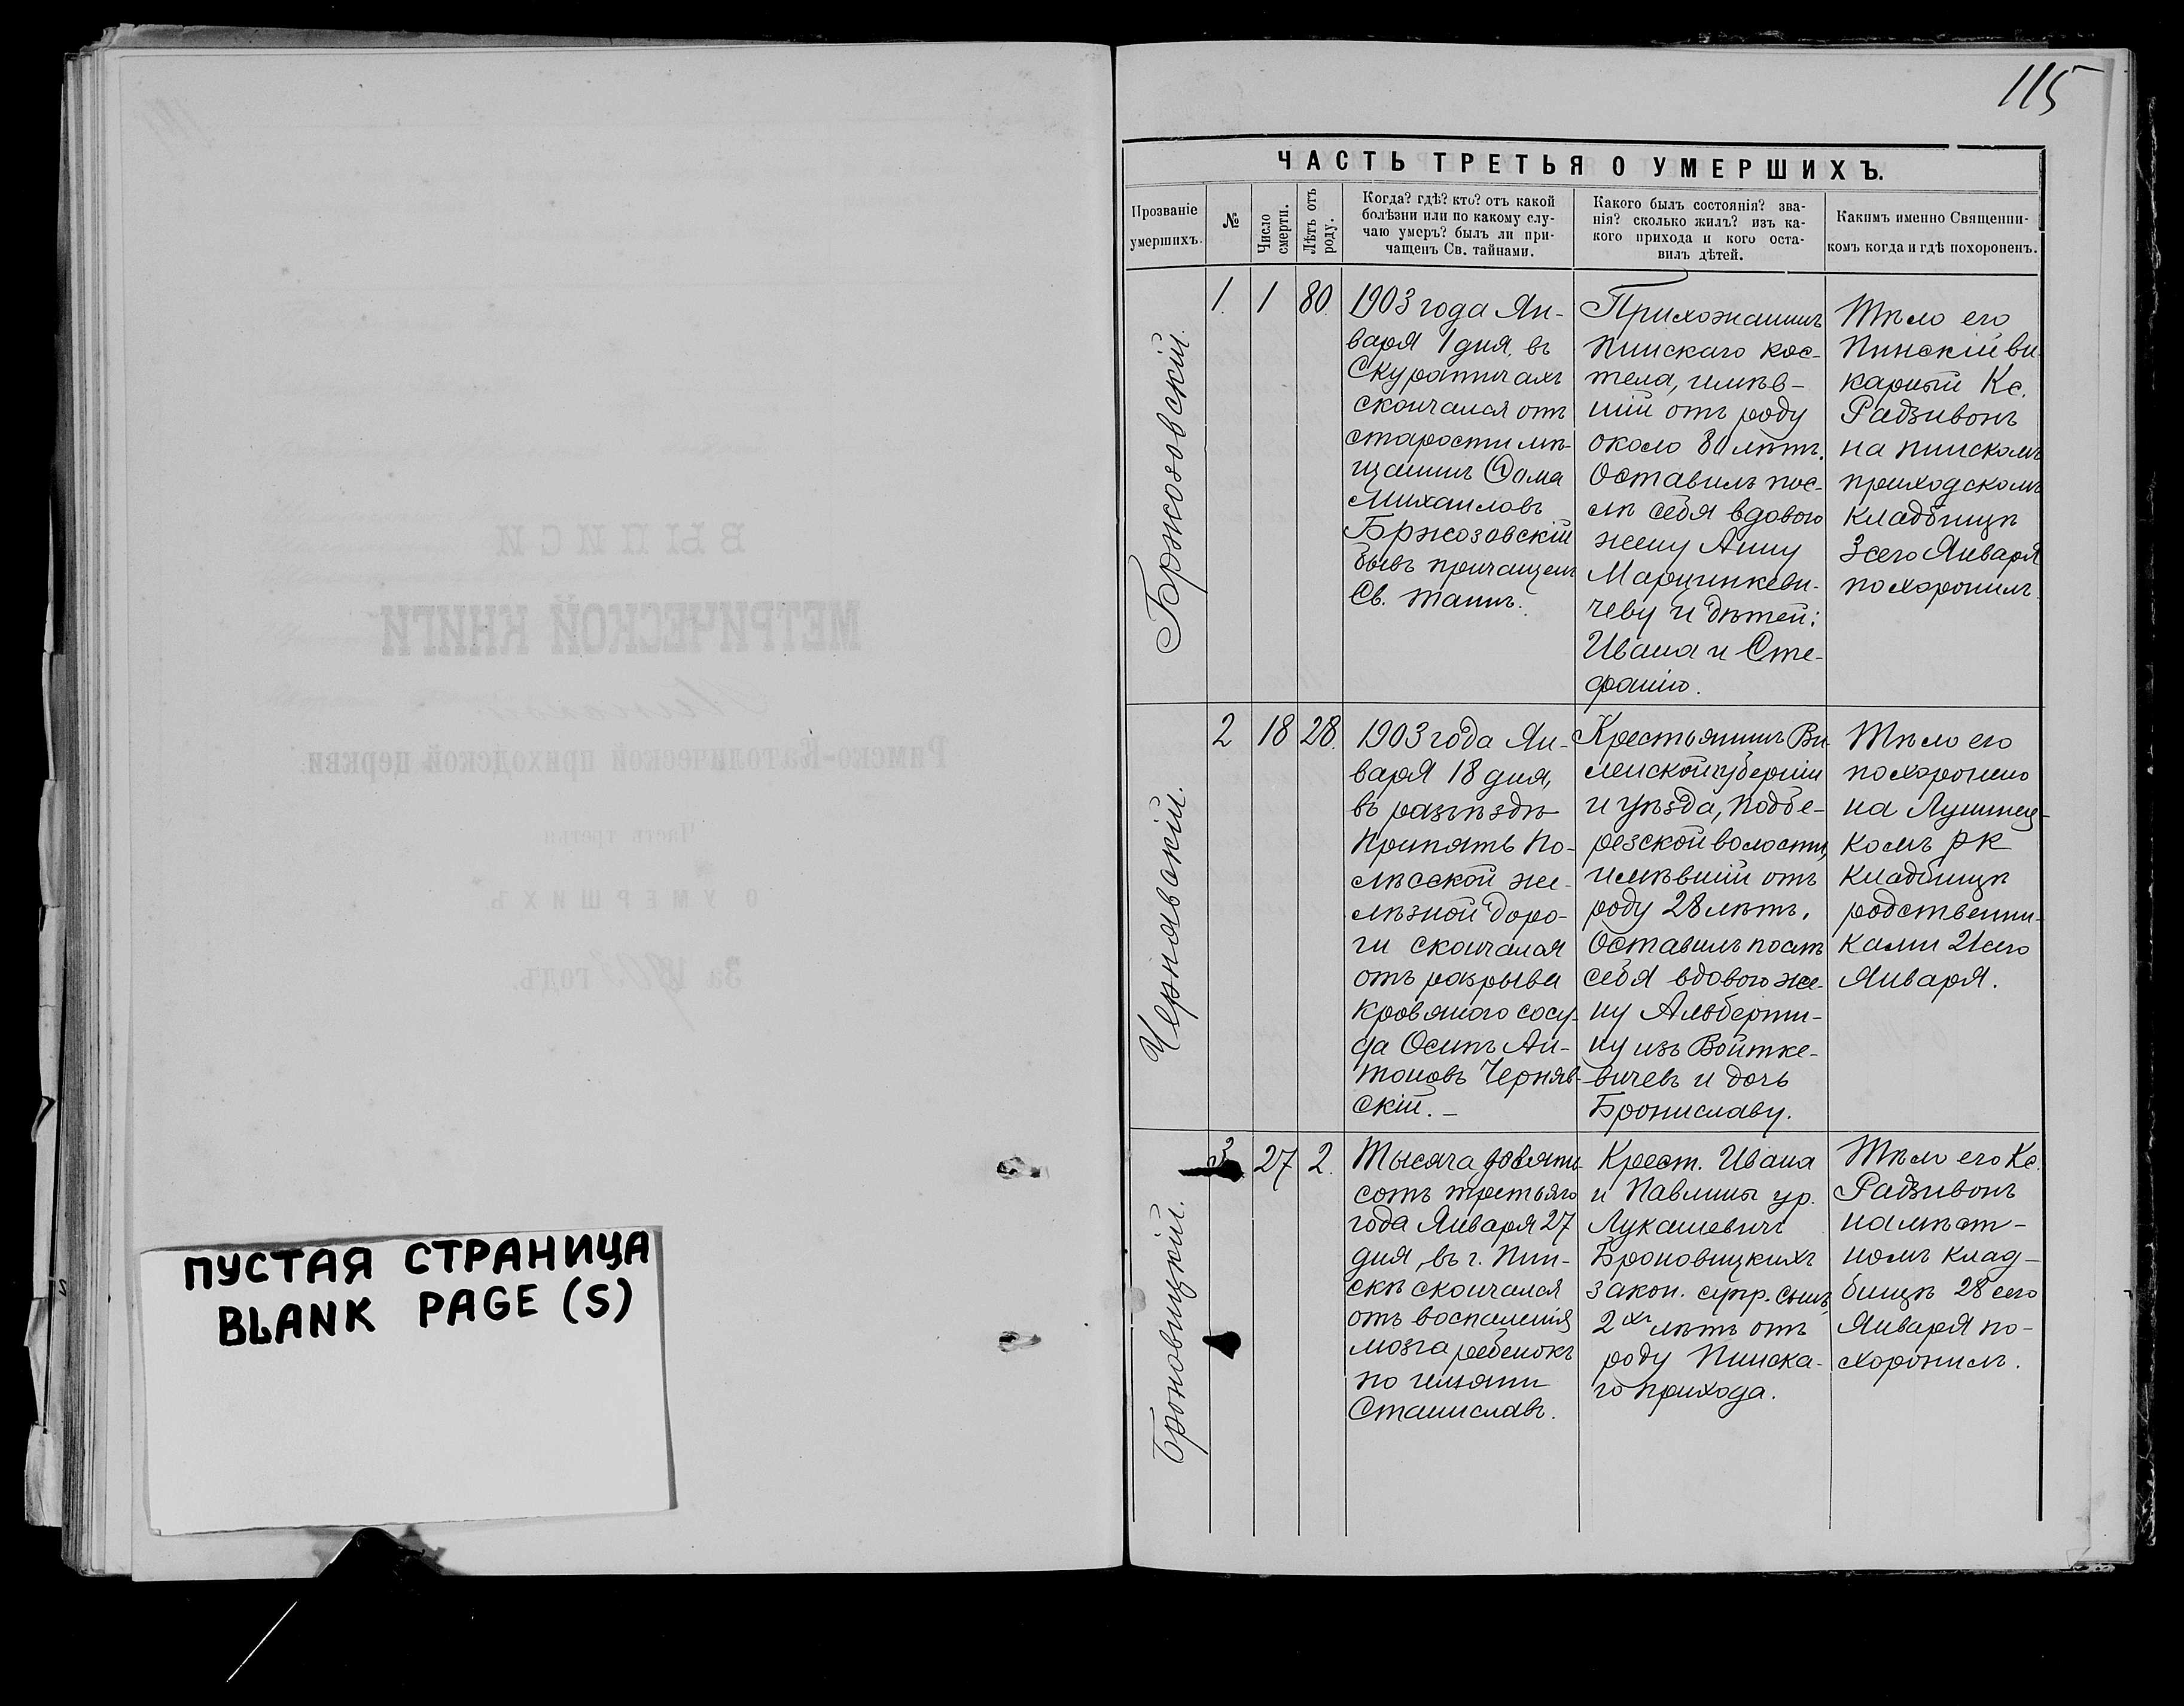 ПУСТАЯ СТРАНИЦА
BLANK PAGE (S)
115
ЧАСТЬ ТРЕТЬЯ О УМЕРШИХЪ.
Прозваніе
умершихъ.
№
Число
смерти.
Лѣтъ отъ
роду.
Когда? гдѣ? кто? отъ какой
болѣзни или по какому слу-
чаю умеръ? былъ ли при-
чащенъ Св. тайнами.
Какого былъ состоянія? зва-
нія? сколько жилъ? изъ ка-
кого прихода и кого оста-
вилъ дѣтей.
Какимъ именно Священни-
комъ когда и гдѣ похороненъ.
Бржозовскій.
1.
1
80.
1903 года Ян-
варя 1 дня, въ
Скуратичахъ
скончался отъ
старости мѣ-
щанинъ Ѳома
Михаиловъ
Бржозовскій
бывъ причащенъ
Св. таинъ.
Прихожанинъ
Пинскаго кос-
тела, имѣв-
шій отъ роду
около 80 лѣтъ.
Оставилъ пос-
лѣ себя вдовою
жену Анну
Марцинкеви-
чеву и дѣтей:
Ивана и Сте-
фанію.
Тѣло его
Пинскій ви-
карный Кс.
Радзивонъ
на пинскомъ
приходскомъ
кладбищѣ
3 сего Января
похоронилъ.
Чернявскій.
2
18
28.
1903 года Ян-
варя 18 дня,
въ разъѣздѣ
Припять По-
лѣсской же-
лѣзной доро-
ги скончался
отъ разрыва
кровяного сосу-
да Осипъ Ан-
тоновъ Черняв-
скій. –
Крестьянинъ Ви-
ленской губерніи
и уѣзда, Подбе-
резской волости,
имѣвшій отъ
роду 28 лѣтъ.
Оставилъ послѣ
себя вдовою же-
ну Альберти-
ну изъ Войтке-
вичевъ и дочь
Брониславу.
Тѣло его
похоронено
на
комъ РК
кладбищѣ
родственни-
ками 21 сего
Января.
Броновицкій.
3
27
2.
Тысяча девять-
сотъ третьяго
года Января 27
дня, въ г. Пин-
скѣ скончался
отъ воспаленія
мозга ребенокъ
по имяни
Станиславъ.
Крест. Ивана
и Павлины ур.
Лукашевичъ
Броновицкихъ
закон. супр. сынъ,
2хъ лѣтъ отъ
роду Пинска-
го прихода.
Тѣло его Кс.
Радзивонъ
на мѣст-
номъ клад-
бищѣ 28 сего
Января по-
хоронилъ.